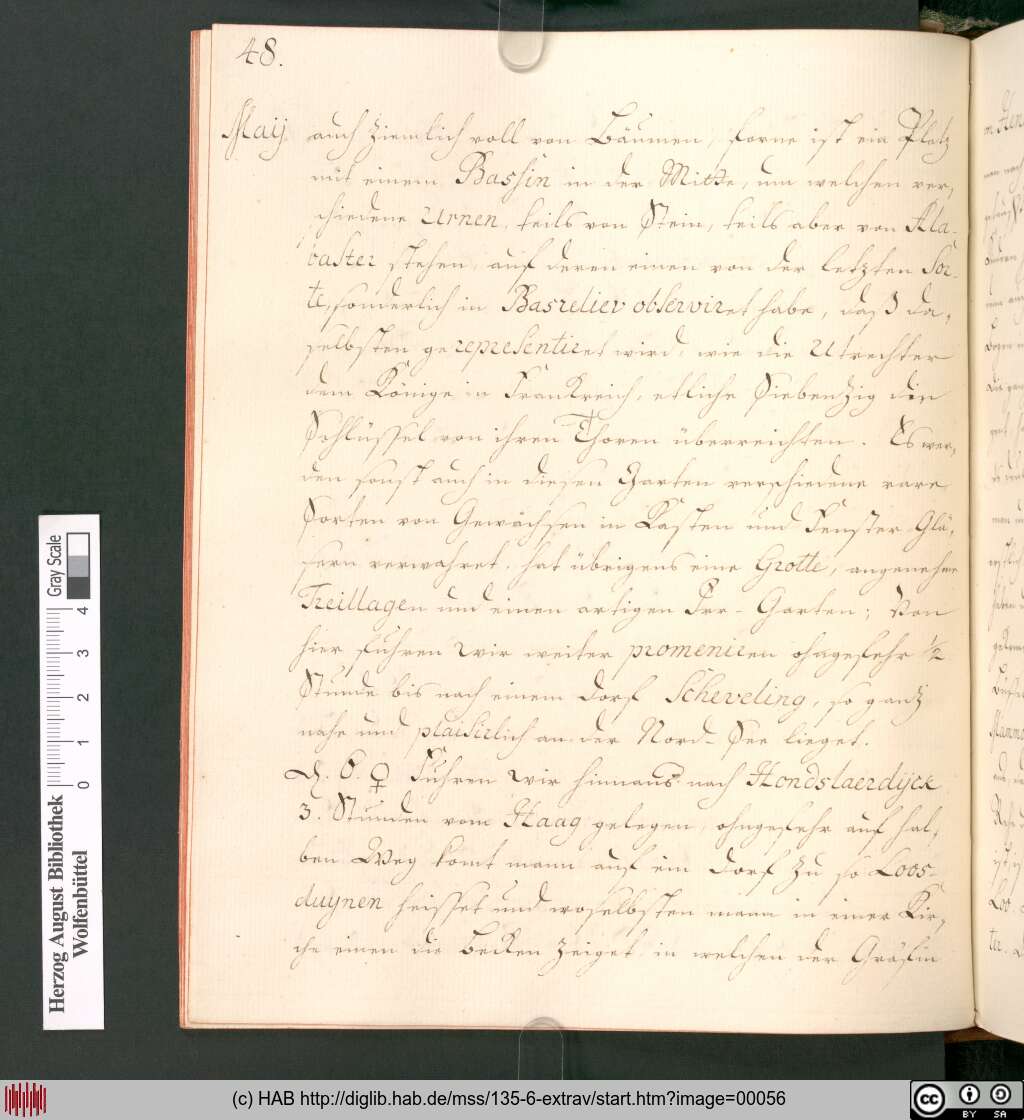 48.
Maij. auch ziemlich voll von Bäumen, forne ist ein Platz
mit einem Bassin in der Mitte, um welchen ver,
schiedene Urnen, teils von Stein, teils aber von Ala-
baster stehen, auf deren einen von der letzten Sor-
te, sonderlich in Basreliev observiret habe, daß da,
selbsten gerepresentiret wird, wie die Utrechter
dem Könige in Franckreich, etliche Siebenzig den
Schlüssel von ihren Thoren überreichten. Es wer,
den sonst auch in diesen Garten verschiedene rare
Sorten von Gewächsen in Kasten und Fenster Glä,
sern verwahret, hat übrigens eine Grotte, angenehme
Treillagen und einen artigen Irr-Garten; Von
hier fuhren wir weiter promeniren ohngefehr 1/2
Stunde bis nach einem Dorf Scheveling, so gantz
nahe und plaisirlich an der Nord-See lieget.
D. 6. ♀ Fuhren wir hinnaus nach Hondslaerdÿck
3. Stunden vom Haag gelegen, ohngefehr auf hal,
ben Weg komt mann auf ein Dorf zu so Loos-
duynen heisset und woselbsten mann in einer Kir,
che einen die Becken zeiget in welchen der Gräfin
Herzog August Bibliothek
Wolfenbüttel
0 1 2 3 4
Gray Scale
(c) HAB http://diglib.hab.de/mss/135-6-extrav/start.htm?image=00056
cc BY SA